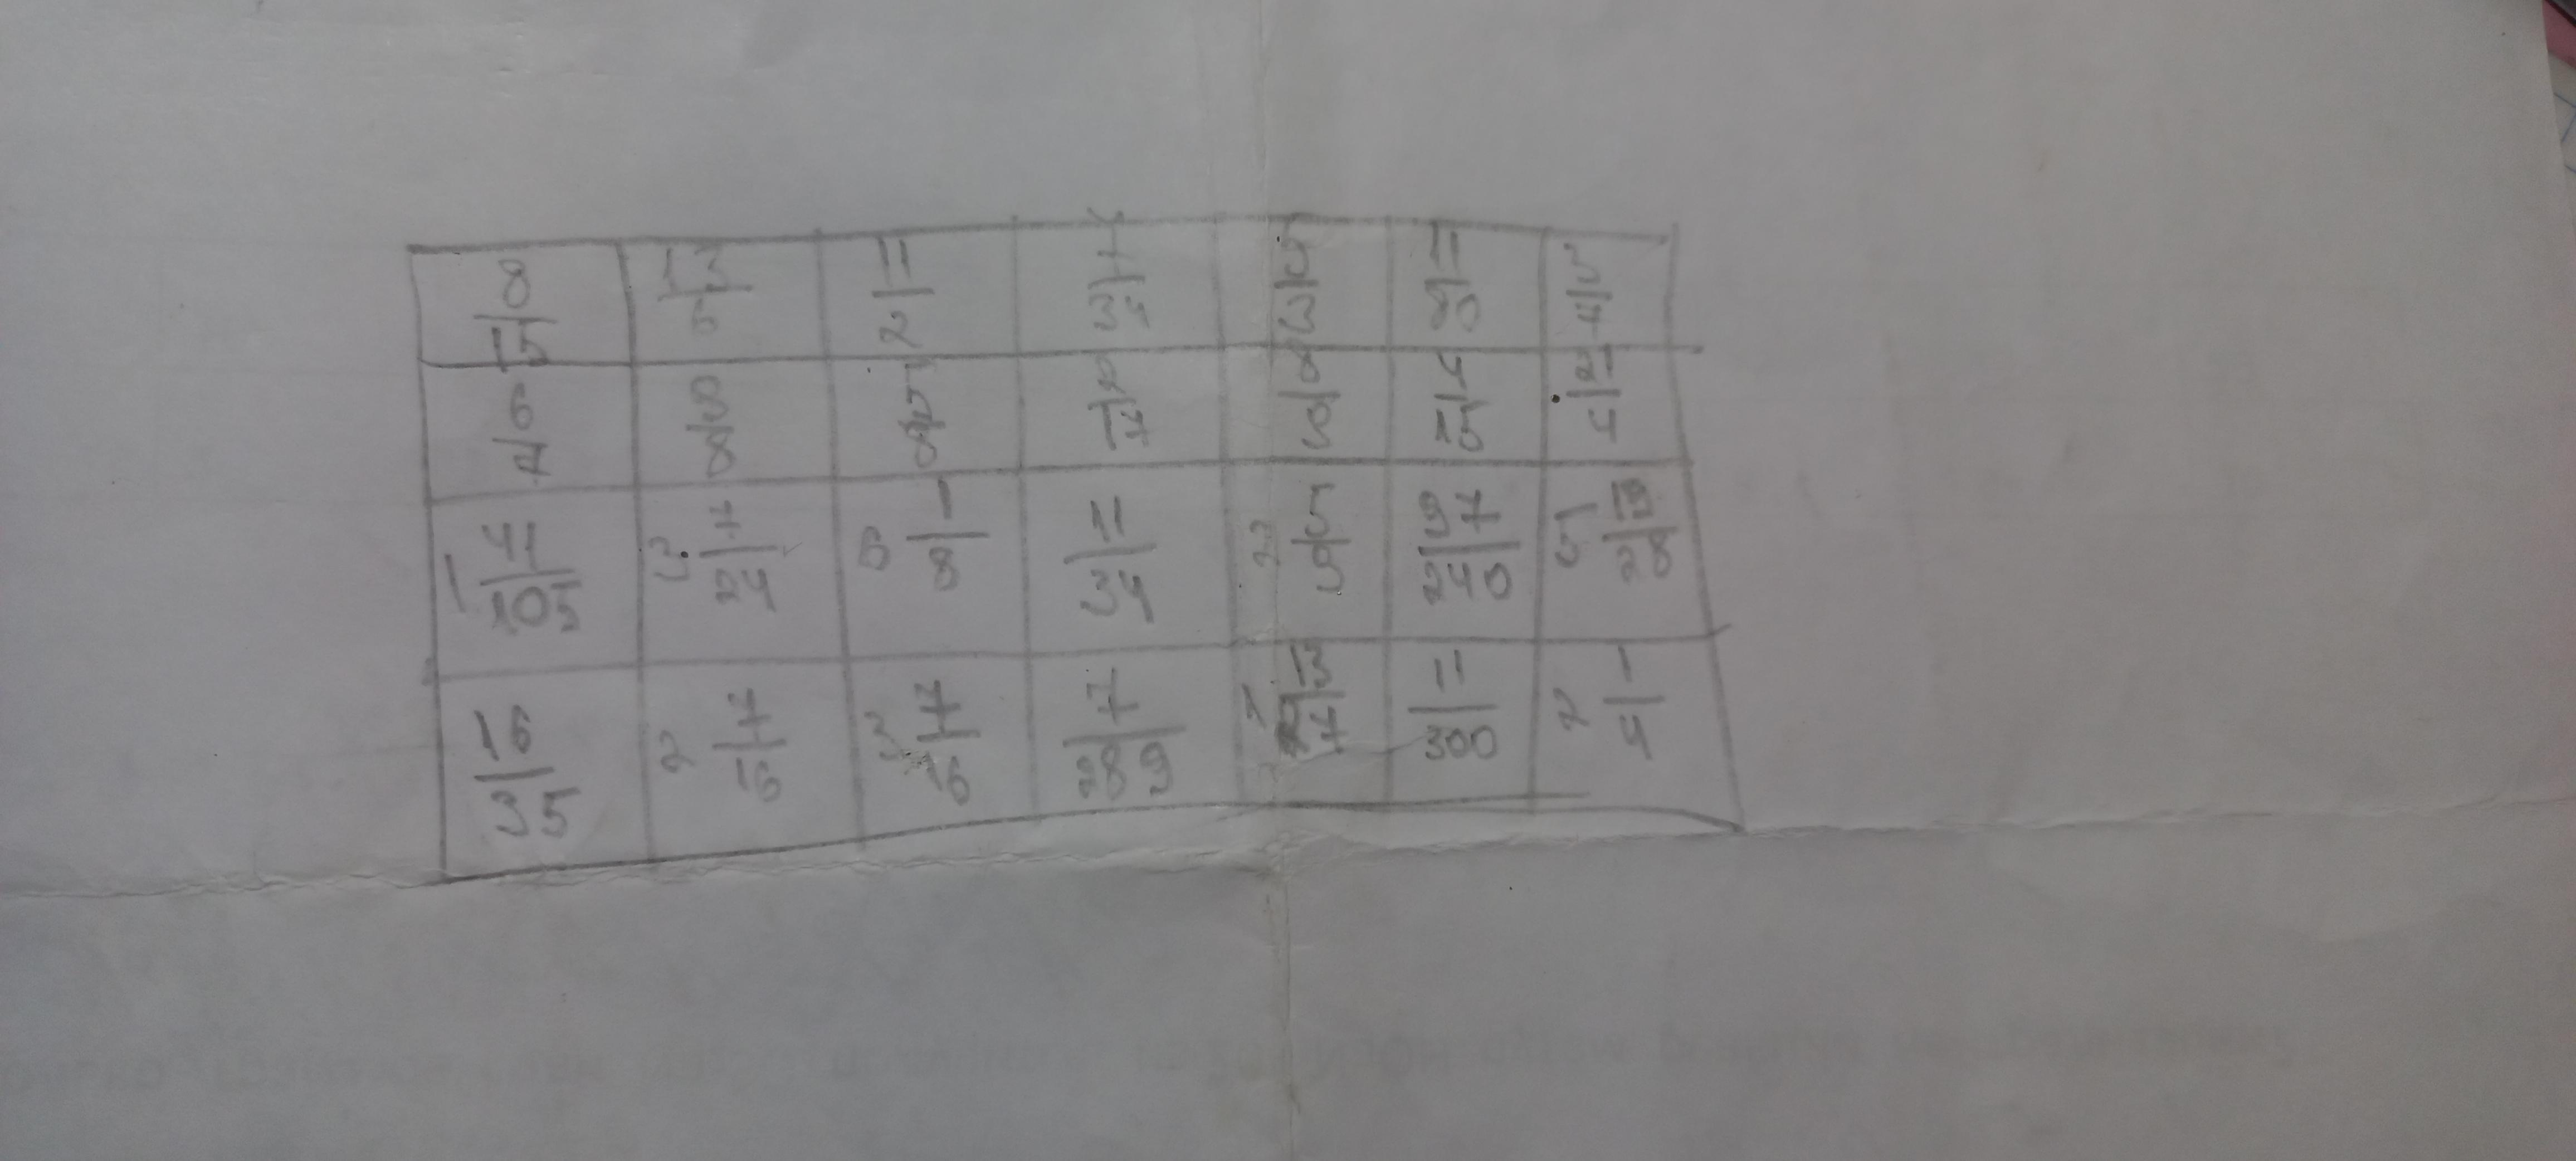 8/15 13/6 11/2 7/34 5/3 11/80 3/7
6/7 9/8 5/8 2/17 8/9 4/15 21/4
1 41/105 3 7/24 6 1/8 11/34 2 5/9 97/240 5 19/28
16/35 2 7/16 3 7/16 7/289 1 13/27 11/300 2 1/4